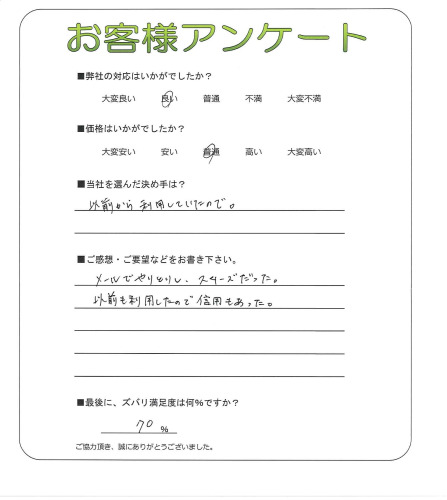 お客様アンケート
■弊社の対応はいかがでしたか？
大変良い 良い 普通 不満 大変不満
■価格はいかがでしたか？
大変安い 安い 普通 高い 大変高い
■当社を選んだ決め手は？
以前から利用していたので。
■ご感想・ご要望などをお書き下さい。
メールでやりとりし、スムーズだった。
以前も利用したので信用もあった。
■最後に、ズバリ満足度は何%ですか？
70 %
ご協力頂き、誠にありがとうございました。